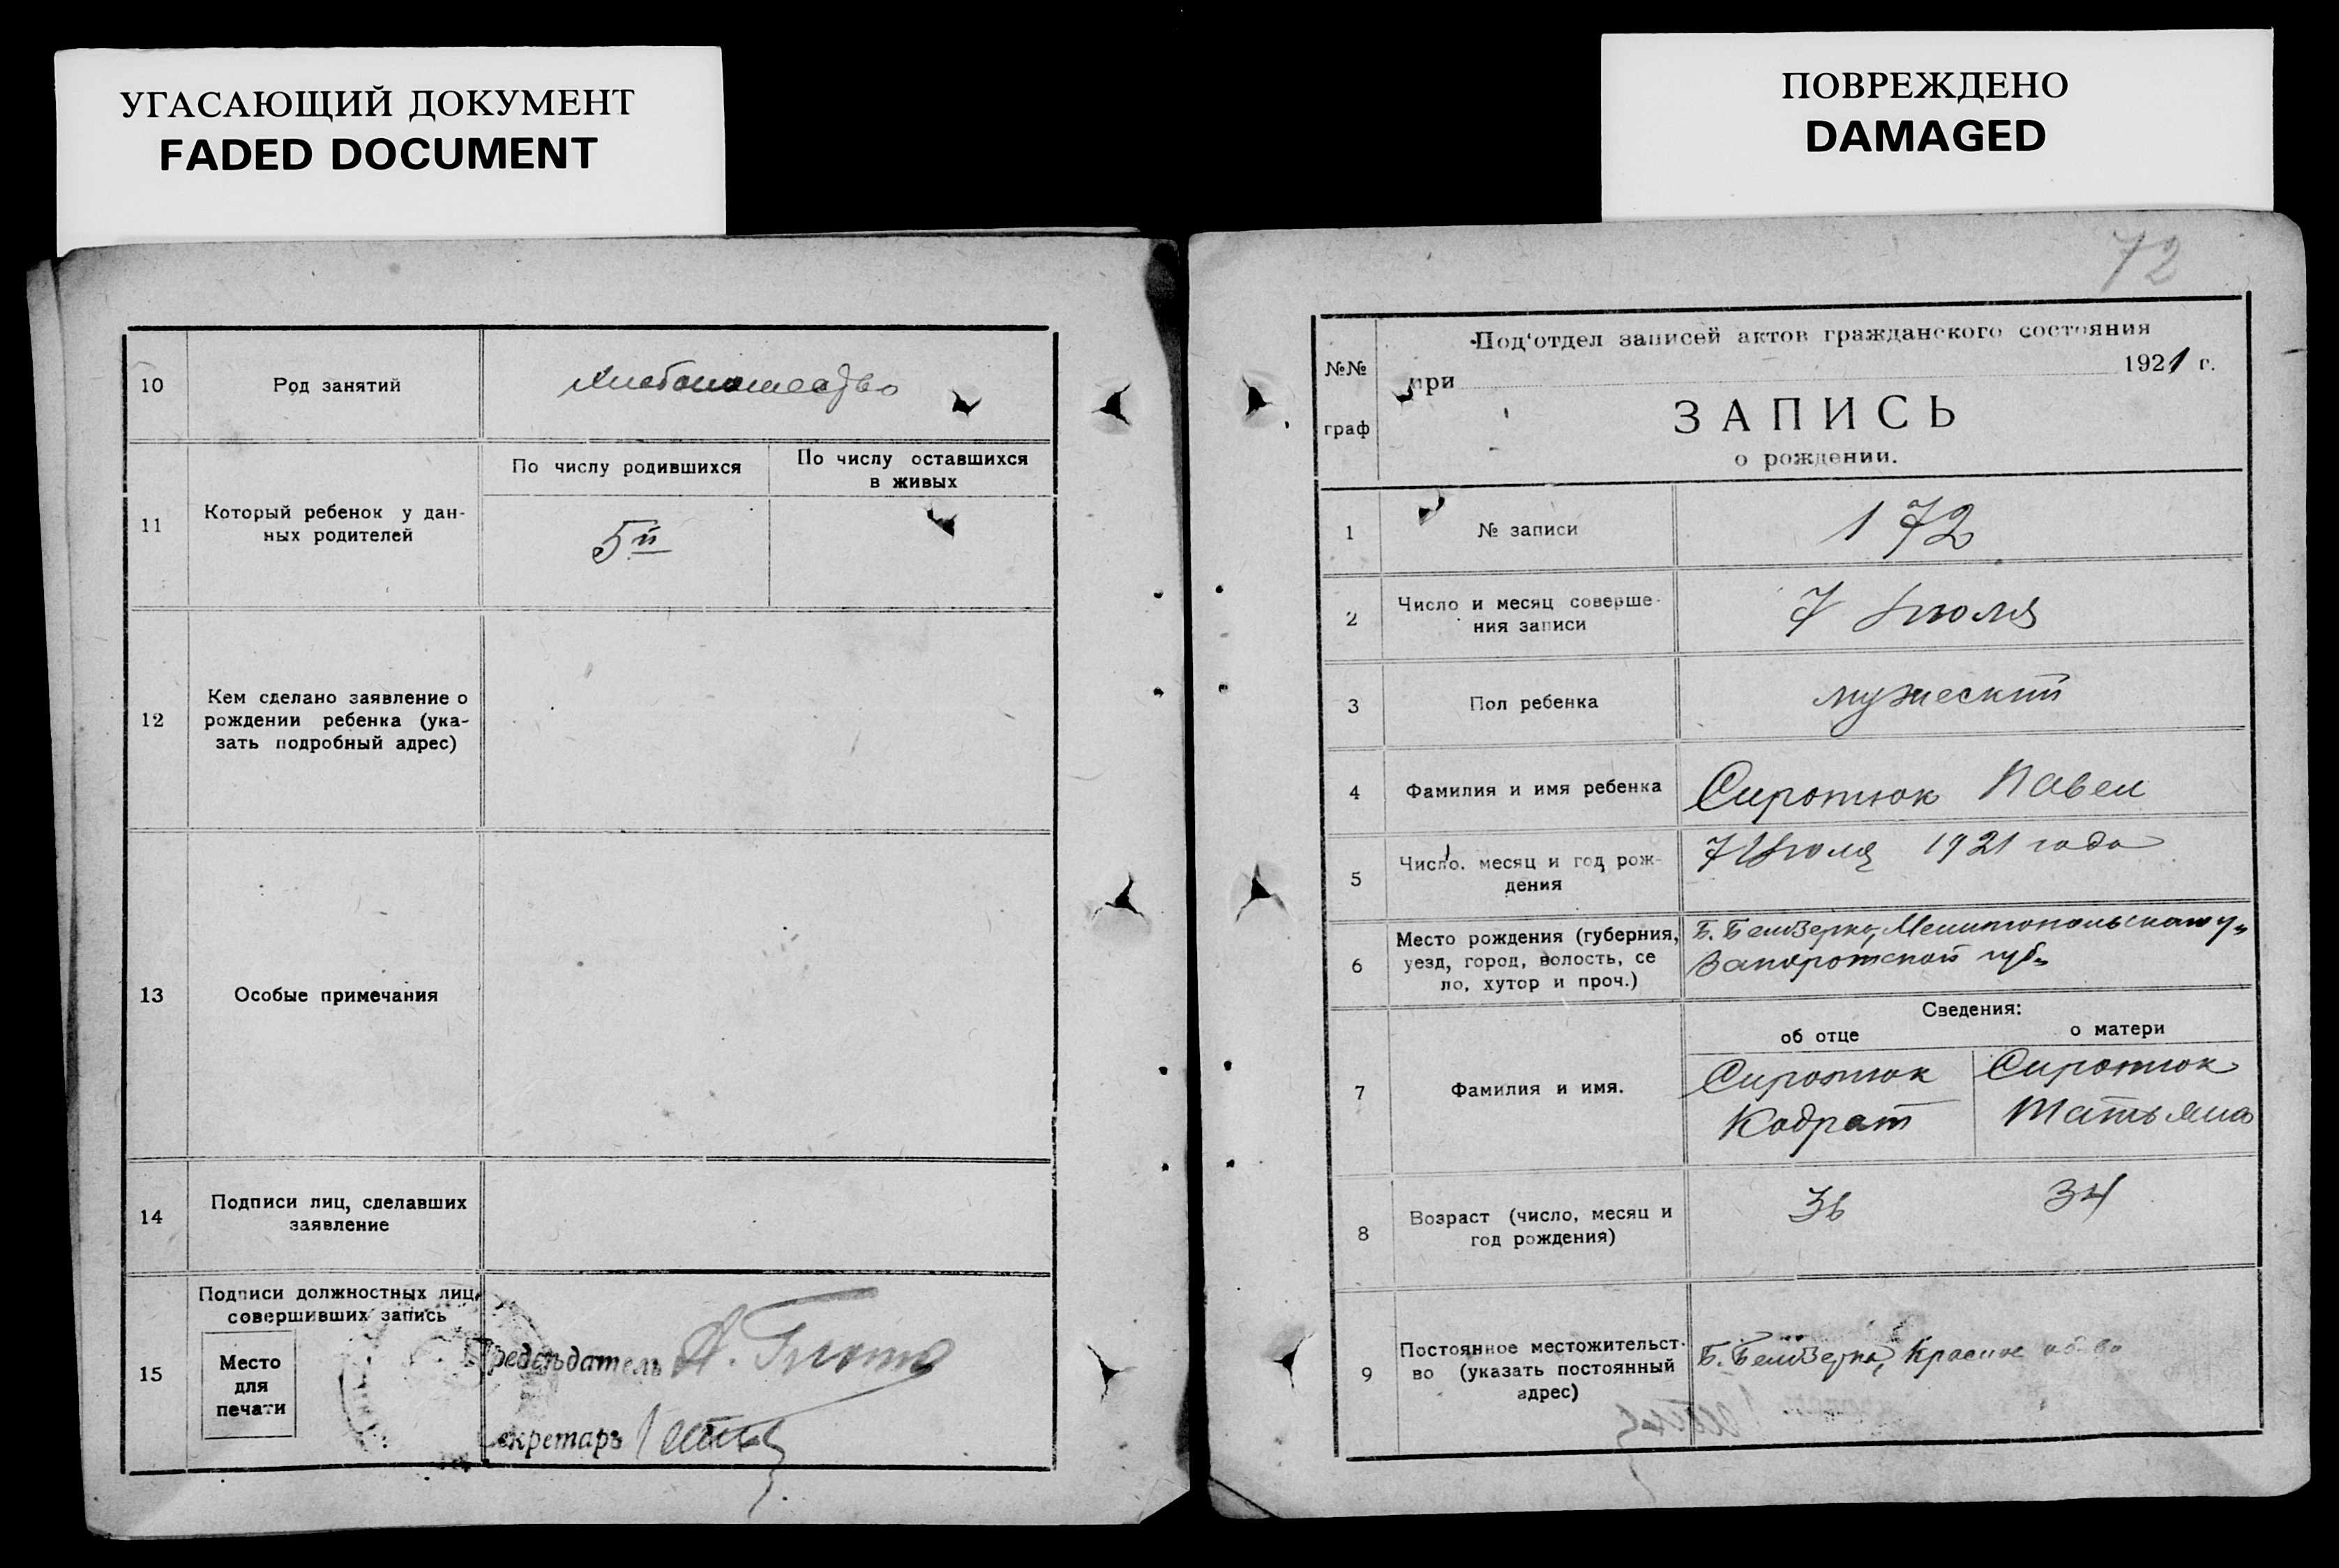 УГАСАЮЩИЙ ДОКУМЕНТ
FADED DOCUMENT
ПОВРЕЖДЕНО
DAMAGED
10
Род занятий
11
Который ребенок у дан-
ных родителей
По числу родившихся
По числу оставшихся
в живых
5й
12
Кем сделано заявление о
рождении ребенка (ука-
зать подробный адрес)
13
Особые примечания
14
Подписи лиц, сделавших
заявление
15
Подписи должностных лиц,
совершивших запись
Место
для
печати
Председатель
Секретарь
72
№№
граф
Под'отдел записей актов гражданского состояния
при 1921 г.
ЗАПИСЬ
о рождении.
1
№ записи
172
2
Число и месяц соверше-
ния записи
7 Июля
3
Пол ребенка
мужеский
4
Фамилия и имя ребенка
Сиротюк Павел
5
Число, месяц и год рож-
дения
7 Июля 1921 года
6
Место рождения (губерния,
уезд, город, волость, се
ло, хутор и проч.)
Б. Белозерка, Мелитопольского у.
Запорожской губ.
Сведения:
об отце
о матери
7
Фамилия и имя.
Сиротюк
Кодрат
Сиротюк
Татьяна
8
Возраст (число, месяц и
год рождения)
36
34
9
Постоянное местожительст-
во (указать постоянный
адрес)
Б. Белозерка, Красное об-во